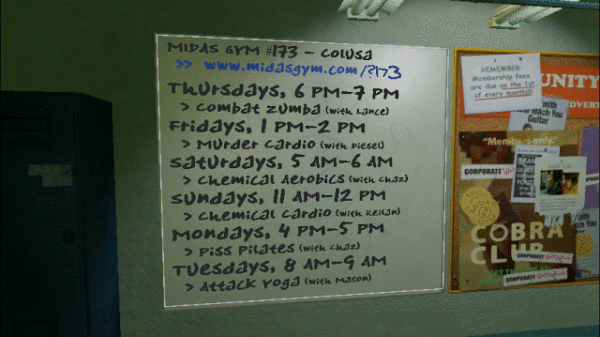 MIDAS GYM #173 – COLUSA
>> www.midasgym.com/?173
Thursdays, 6 PM–7 PM
> Combat Zumba (with Lance)
Fridays, 1 PM–2 PM
> Murder Cardio (with Diesel)
Saturdays, 5 AM–6 AM
> Chemical Aerobics (with Chaz)
Sundays, 11 AM–12 PM
> Chemical Cardio (with Keilan)
Mondays, 4 PM–5 PM
> Piss Pilates (with Chaz)
Tuesdays, 8 AM–9 AM
> Attack Yoga (with Mason)
REMEMBER:
Membership fees
are due on the 1st
of every month!
UNITY
ADVERT
Smith
Teach You
Guitar
"Members only."
CORPORATE
COBRA
CLUB
CORPORATE
CORPORATE